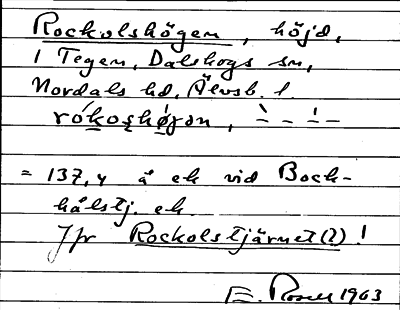 Rockolshögen, höjd,
i Tegen, Dalskogs sn,
Nordals hd, Älvsb. l.
= 137,4 å ek vid Bock-
hålstj. ek.
Jfr Rockolstjärnet(?)!
E. Rosell 1963